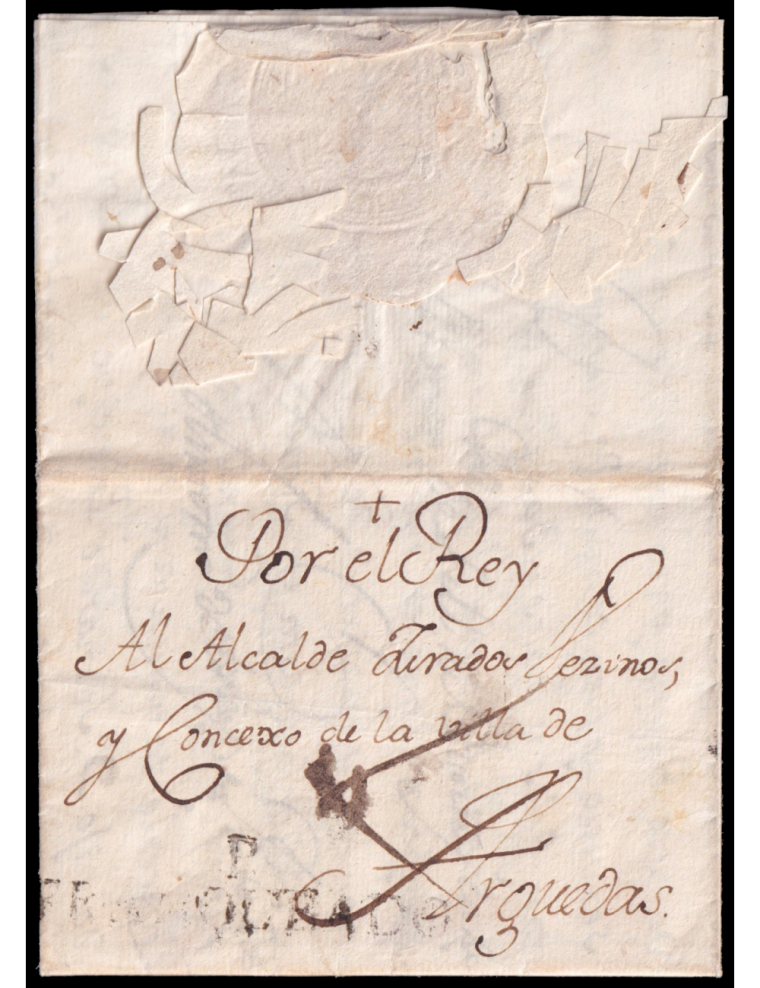 +
Por el Rey
Al Alcalde Jurados Vezinos,
y Concexo de la villa de
Arguedas.
P.
FRANQUEADO